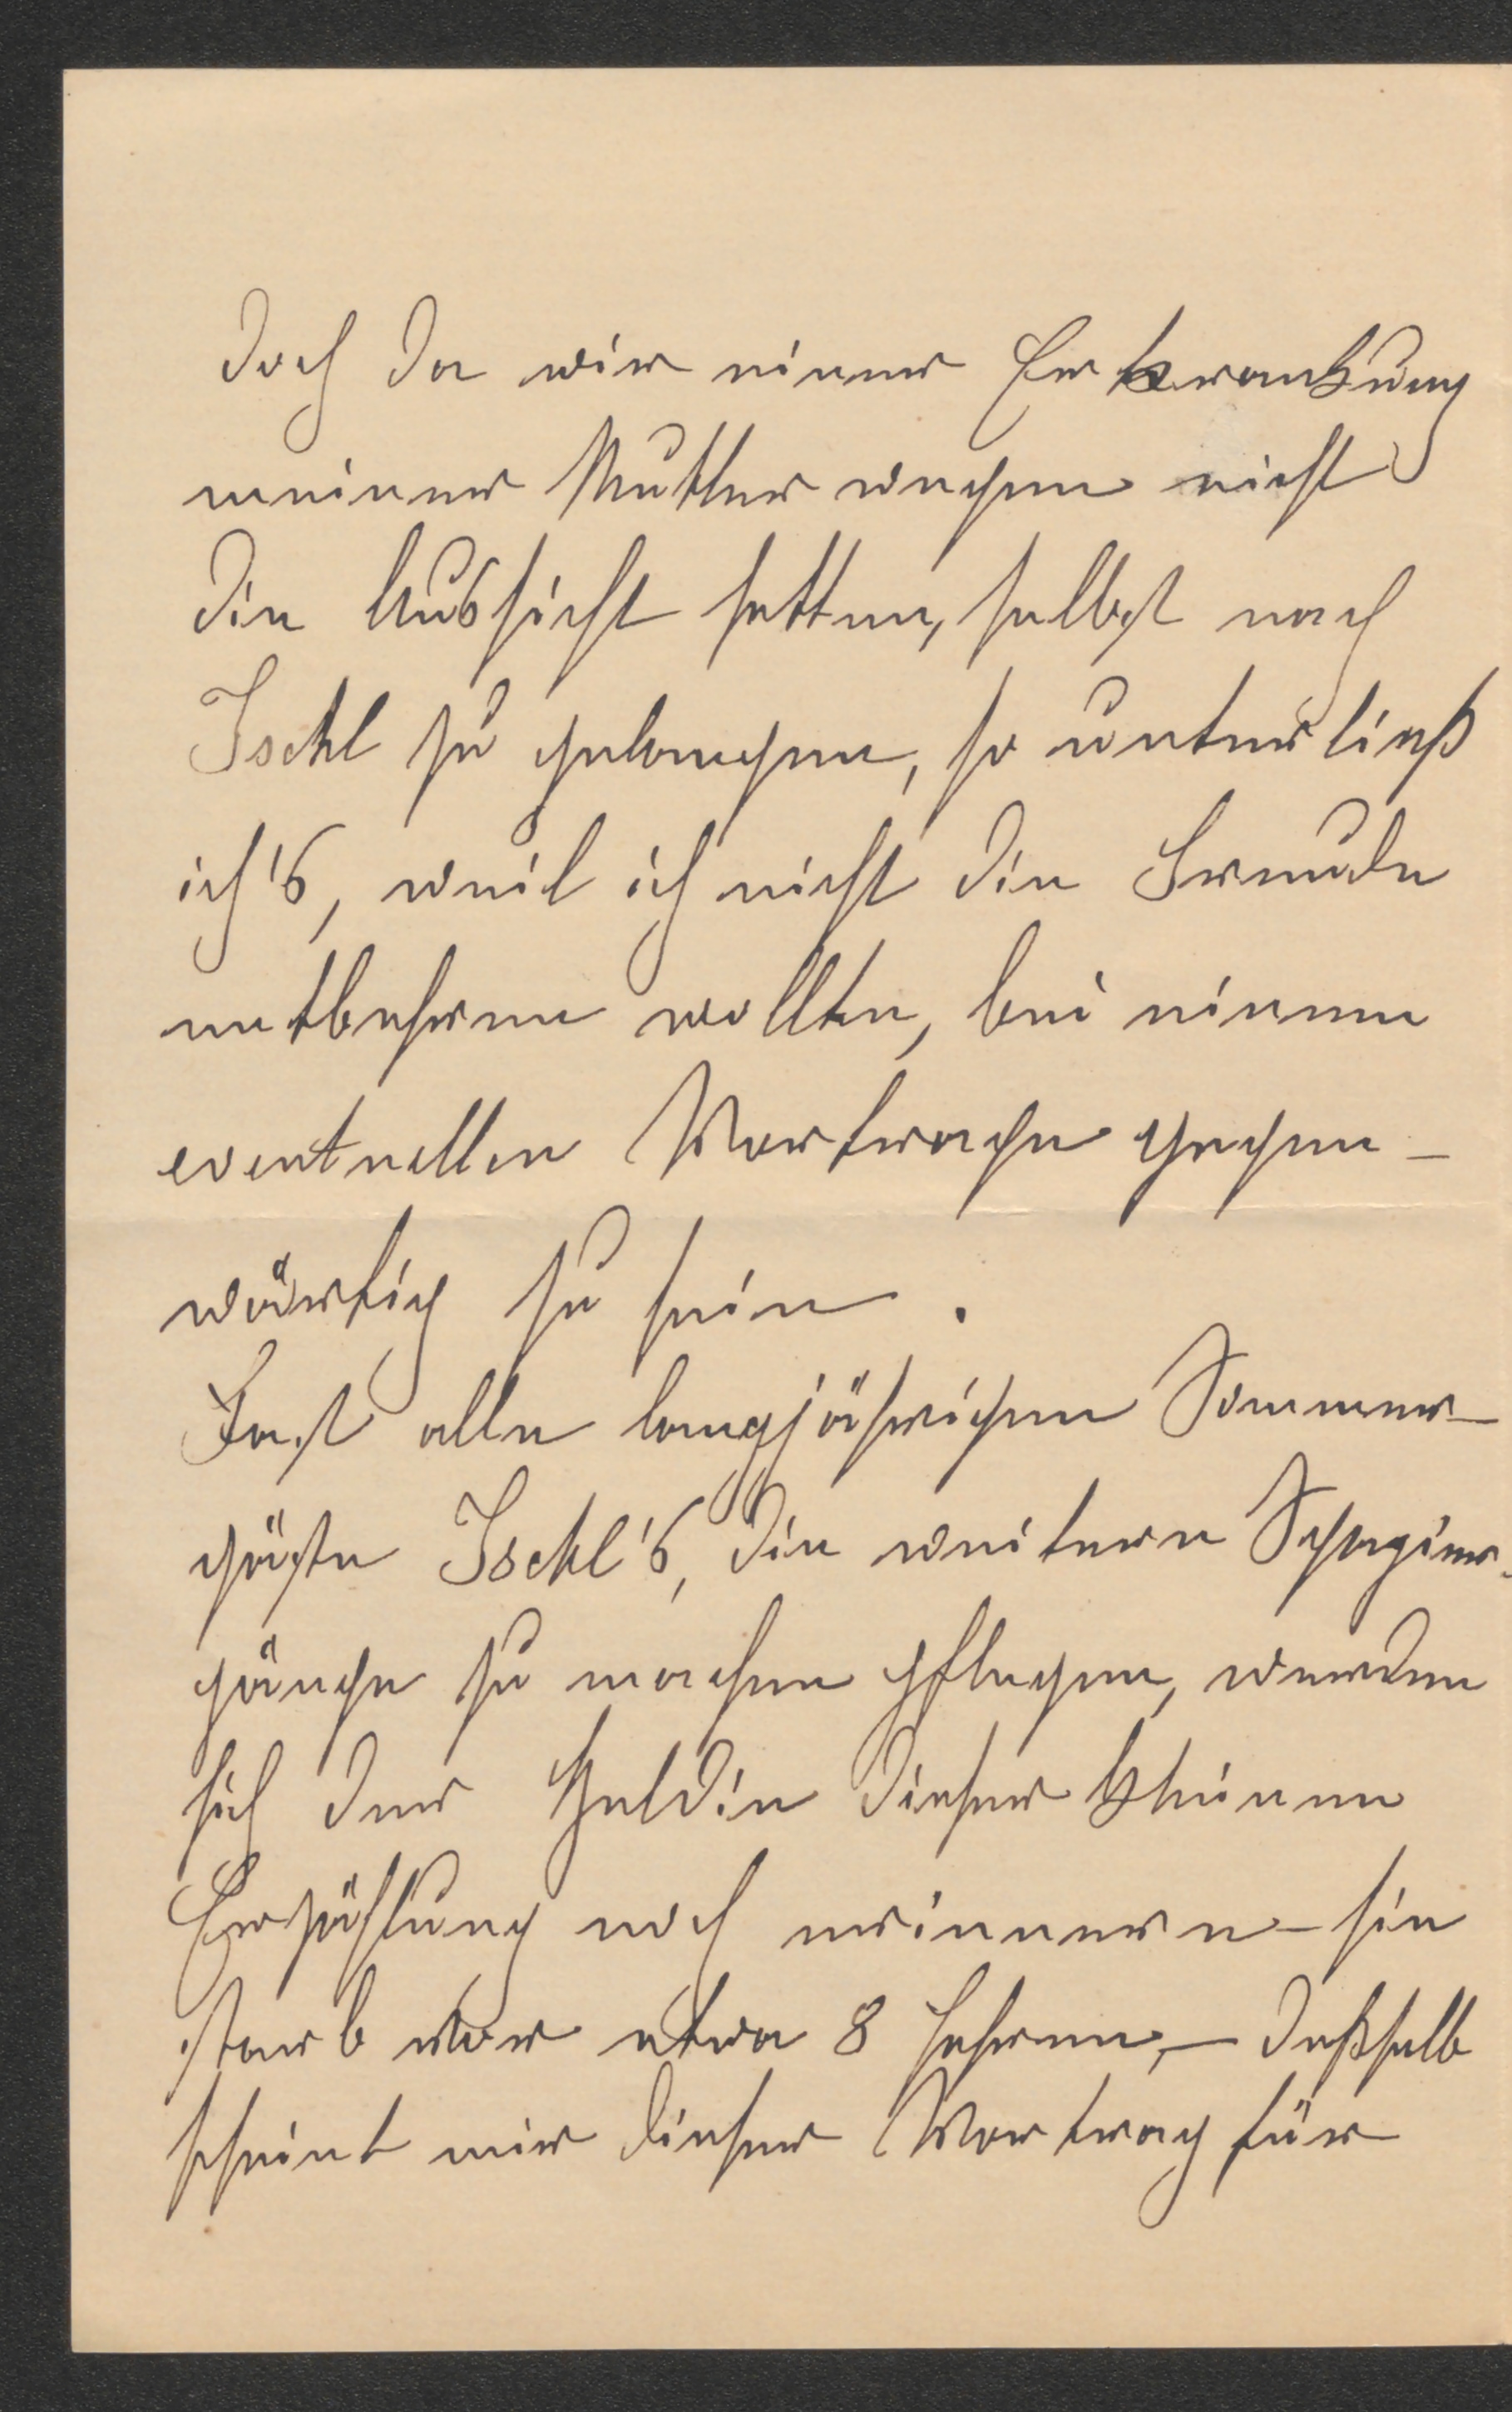 doch da wir einer Erkrankung
meiner Mutter wegen nicht
die Aussicht hatten, selbst nach
Ischl zu gelangen, so unterließ
ich's, weil ich nicht die Freude
entbehren wollte, bei einem
eventuellen Vortrage gegen-
wärtig zu sein.
Fast alle langjährigen Sommer-
gäste Ischl's, die weitere Spazier-
gänge zu machen pflegen, werden
sich der Heldin dieser kleinen
Erzählung noch erinnern - sie
starb vor etwa 8 Jahren, - deßhalb
scheint mir dieser Vortrag für